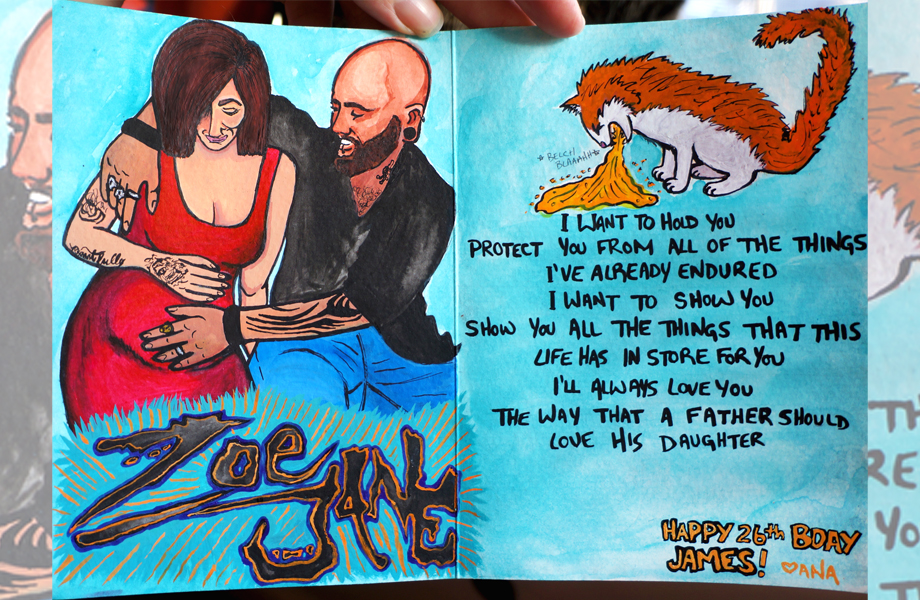 Zoe
JANE
*BELCH
BLAAHHH*
I WANT TO HOLD YOU
PROTECT YOU FROM ALL OF THE THINGS
I'VE ALREADY ENDURED
I WANT TO SHOW YOU
SHOW YOU ALL THE THINGS THAT THIS
LIFE HAS IN STORE FOR YOU
I'LL ALWAYS LOVE YOU
THE WAY THAT A FATHER SHOULD
LOVE HIS DAUGHTER
HAPPY 26th BDAY
JAMES!
♡ANA